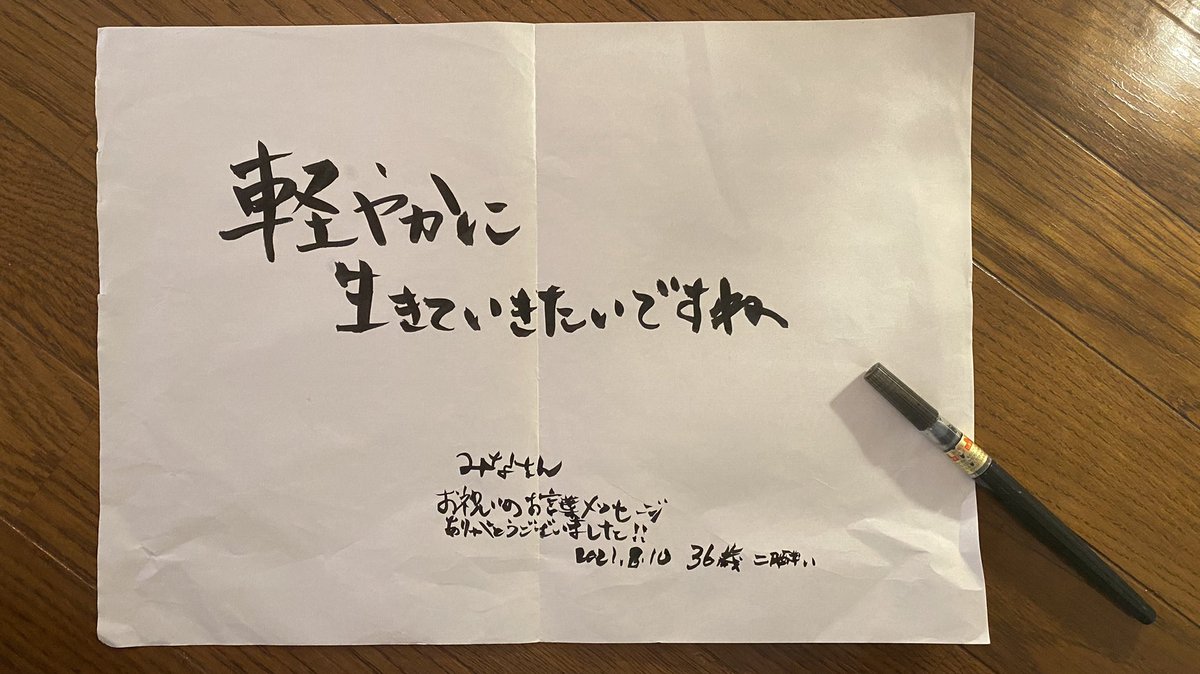 軽やかに
生きていきたいですね
みなさん
お祝いのお言葉メッセージ
ありがとうございました!!
2021.8.10 36歳 二日酔い